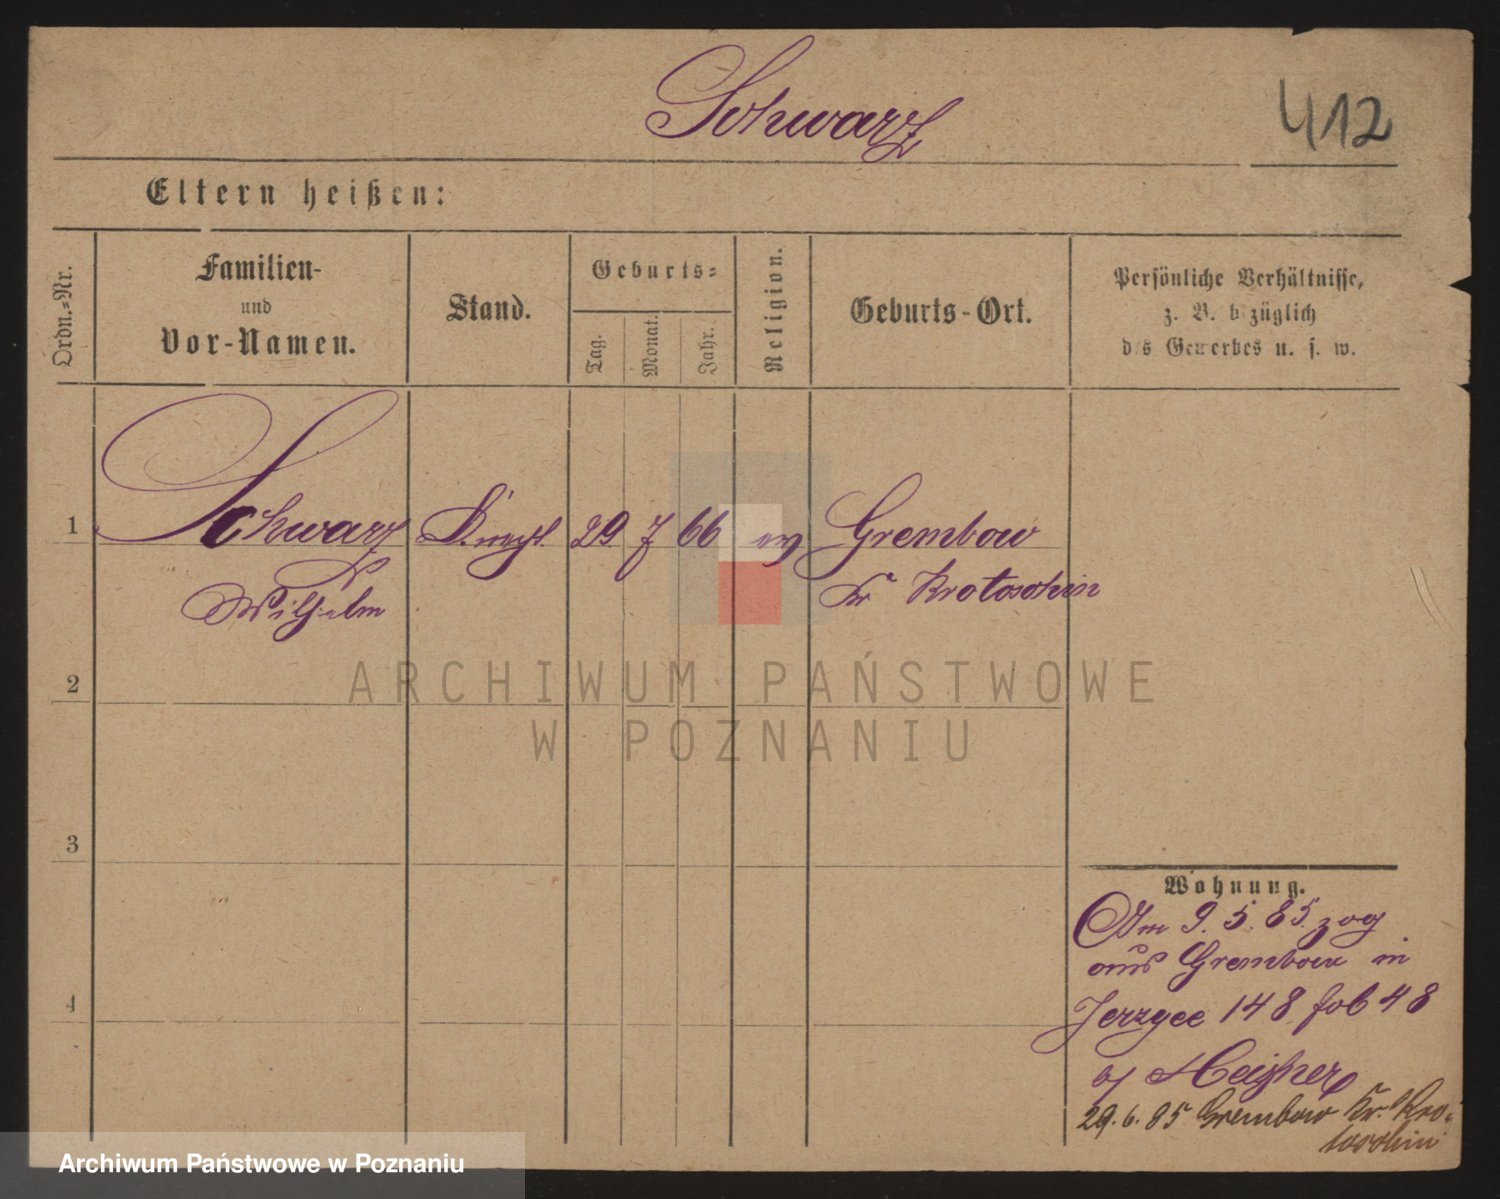 Schwarz
412
Eltern heißen:
Ordn.=Nr.
Familien-
und
Vor-Namen.
Stand.
Geburts=
Tag.
Monat.
Jahr.
Religion.
Geburts-Ort.
Persönliche Verhältnisse,
z. B. bezüglich
des Gewerbes u. s. w.
1
Schwarz
Wilhelm
Knecht
29
7
66
ev
Grembow
Kr Krotoschin
2
3
4
Wohnung.
Am 9. 5. 85. zog
aus Grembow in
148 fol 48
29. 6. 85 Grembow Kr. Kro-
toschin
ARCHIWUM PAŃSTWOWE
W POZNANIU
Archiwum Państwowe w Poznaniu